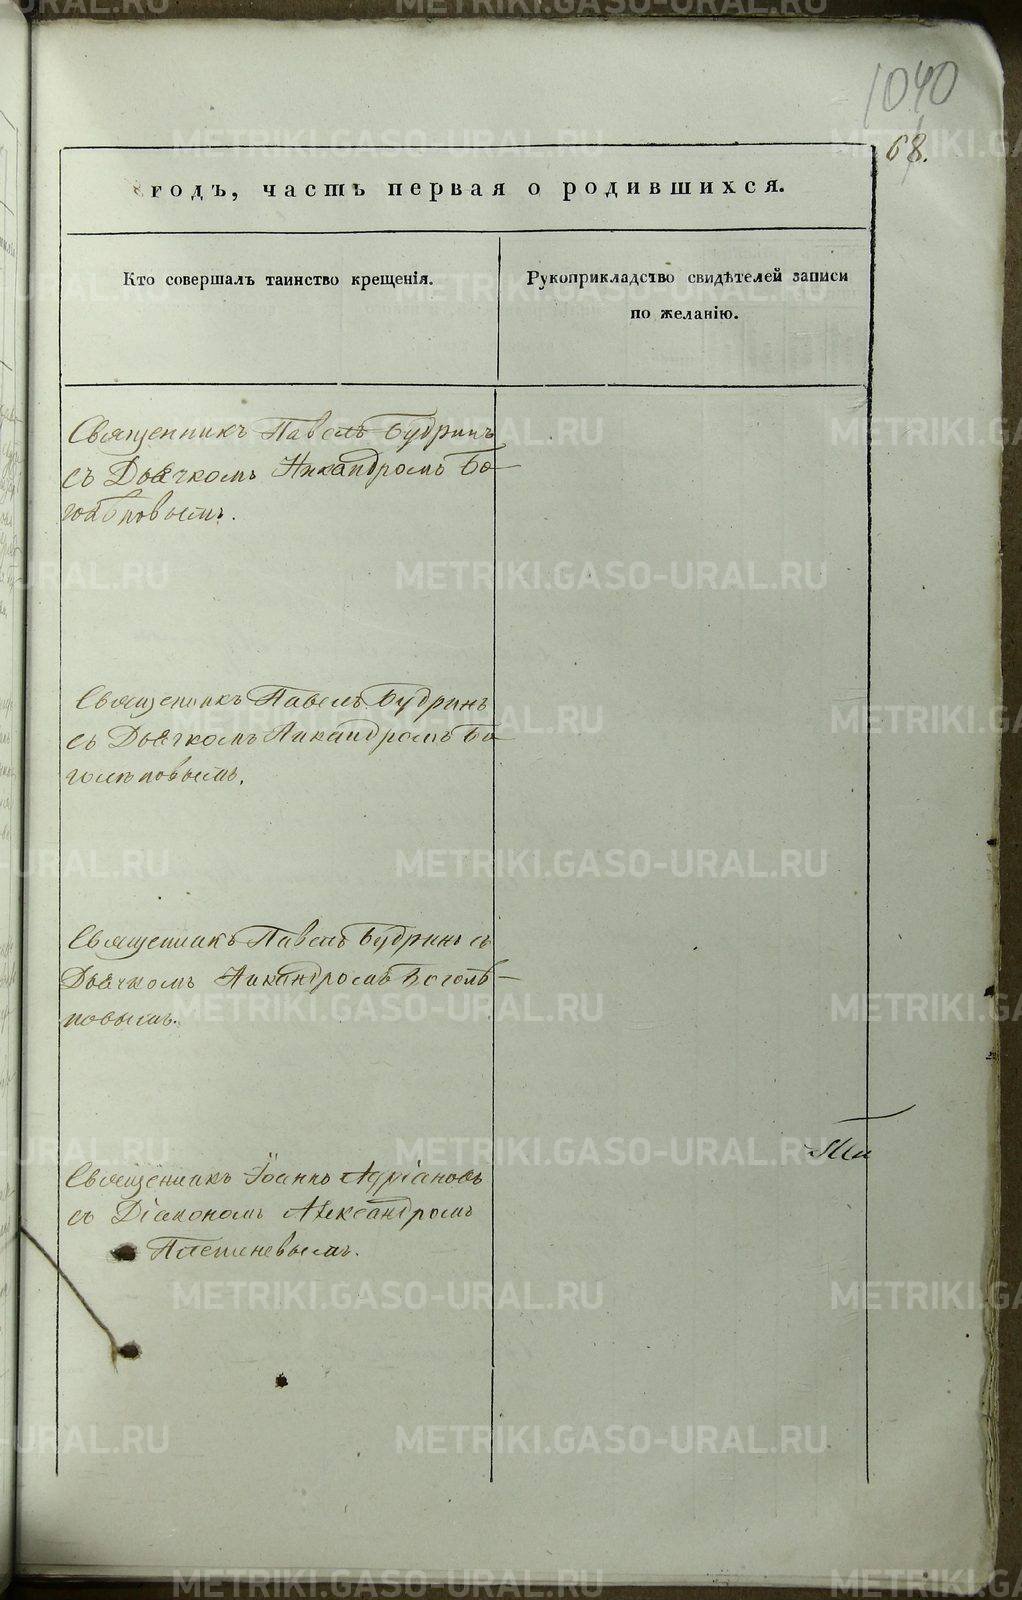 1040
68.
годъ, часть первая о родившихся.
Кто совершалъ таинство крещенія.
Рукоприкладство свидѣтелей записи
по желанію.
Священникъ Павелъ Будринъ
съ Дьячкомъ Никандромъ Бо-
голѣповымъ.
Священникъ Павелъ Будринъ
съ Дьячкомъ Никандромъ Бо-
голѣповымъ.
Священникъ Павелъ Будринъ съ
Дьячкомъ Никандромъ Боголѣ-
повымъ.
Священникъ Іоаннъ Адріановъ
съ Діакономъ Александромъ
Плетневымъ.
METRIKI.GASO-URAL.RU